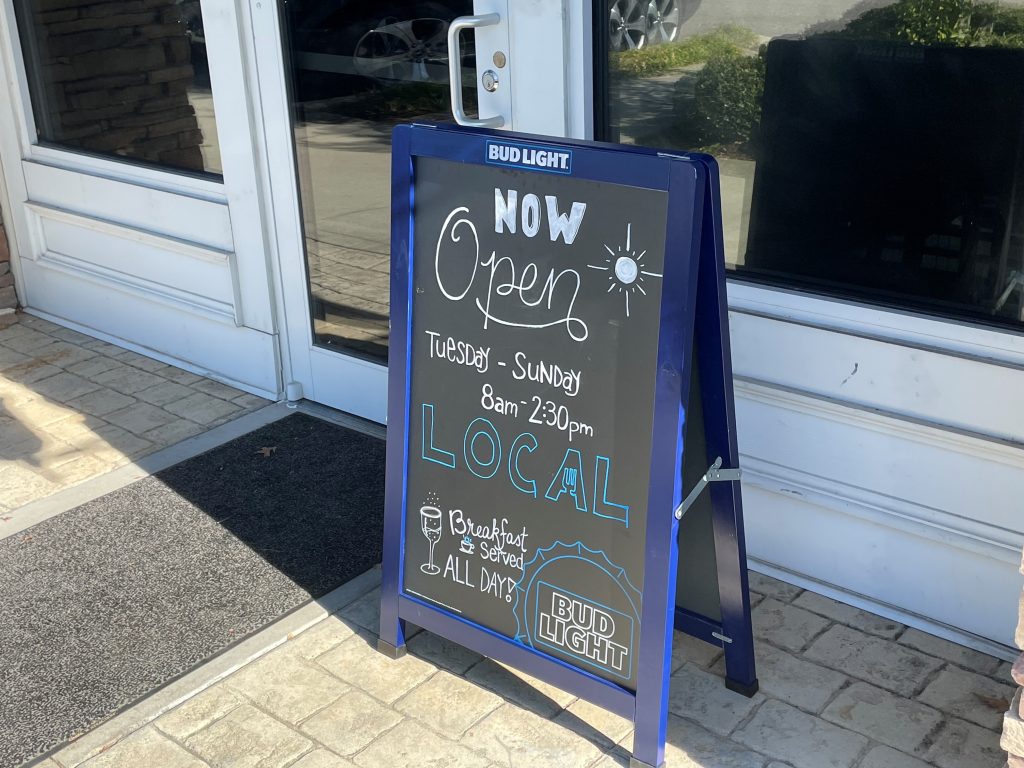 BUD LIGHT
NOW
Open
Tuesday - Sunday
8am - 2:30pm
LOCAL
Breakfast
Served
ALL DAY!
BUD
LIGHT